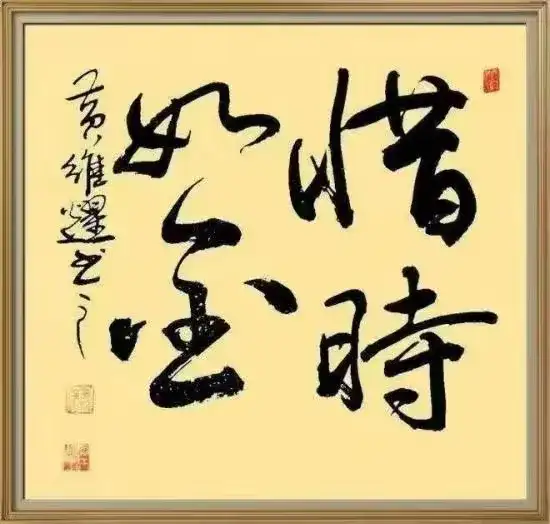 惜時
如金
黄維耀书之